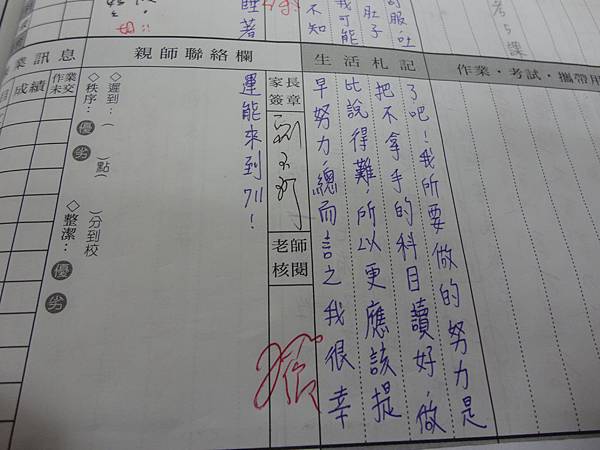 作業・考試・攜帶用
生活札記
了吧!我所要做的努力是
把不拿手的科目讀好,做
比說得難,所以更應該提
早努力,總而言之我很幸
運能來到711!
肚子
我可能
不知
睡著
家長簽章
老師核閱
親師聯絡欄
◇遲到:( )點( )分到校
◇秩序:優 劣 ◇整潔:優 劣
業訊息
成績
作業未交